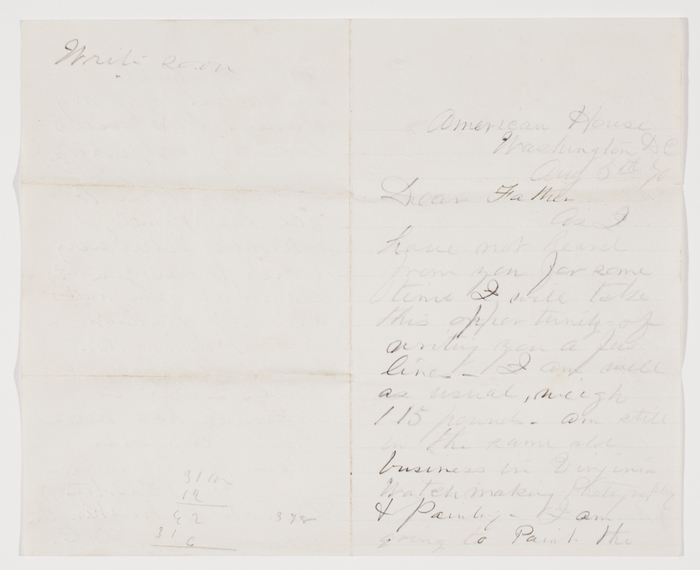 Write soon
31 m
12
62
31
6
372
American House
Washington DC
Aug 5th 70
Dear Father
As I
have not heard
from you for some
time I will take
this opportunity of
writing you a few
lines - I am well
as usual, weigh
115 pounds - am still
in the same old
business in Virginia
Watchmaking Photography
& Painting - I am
going to Paint the